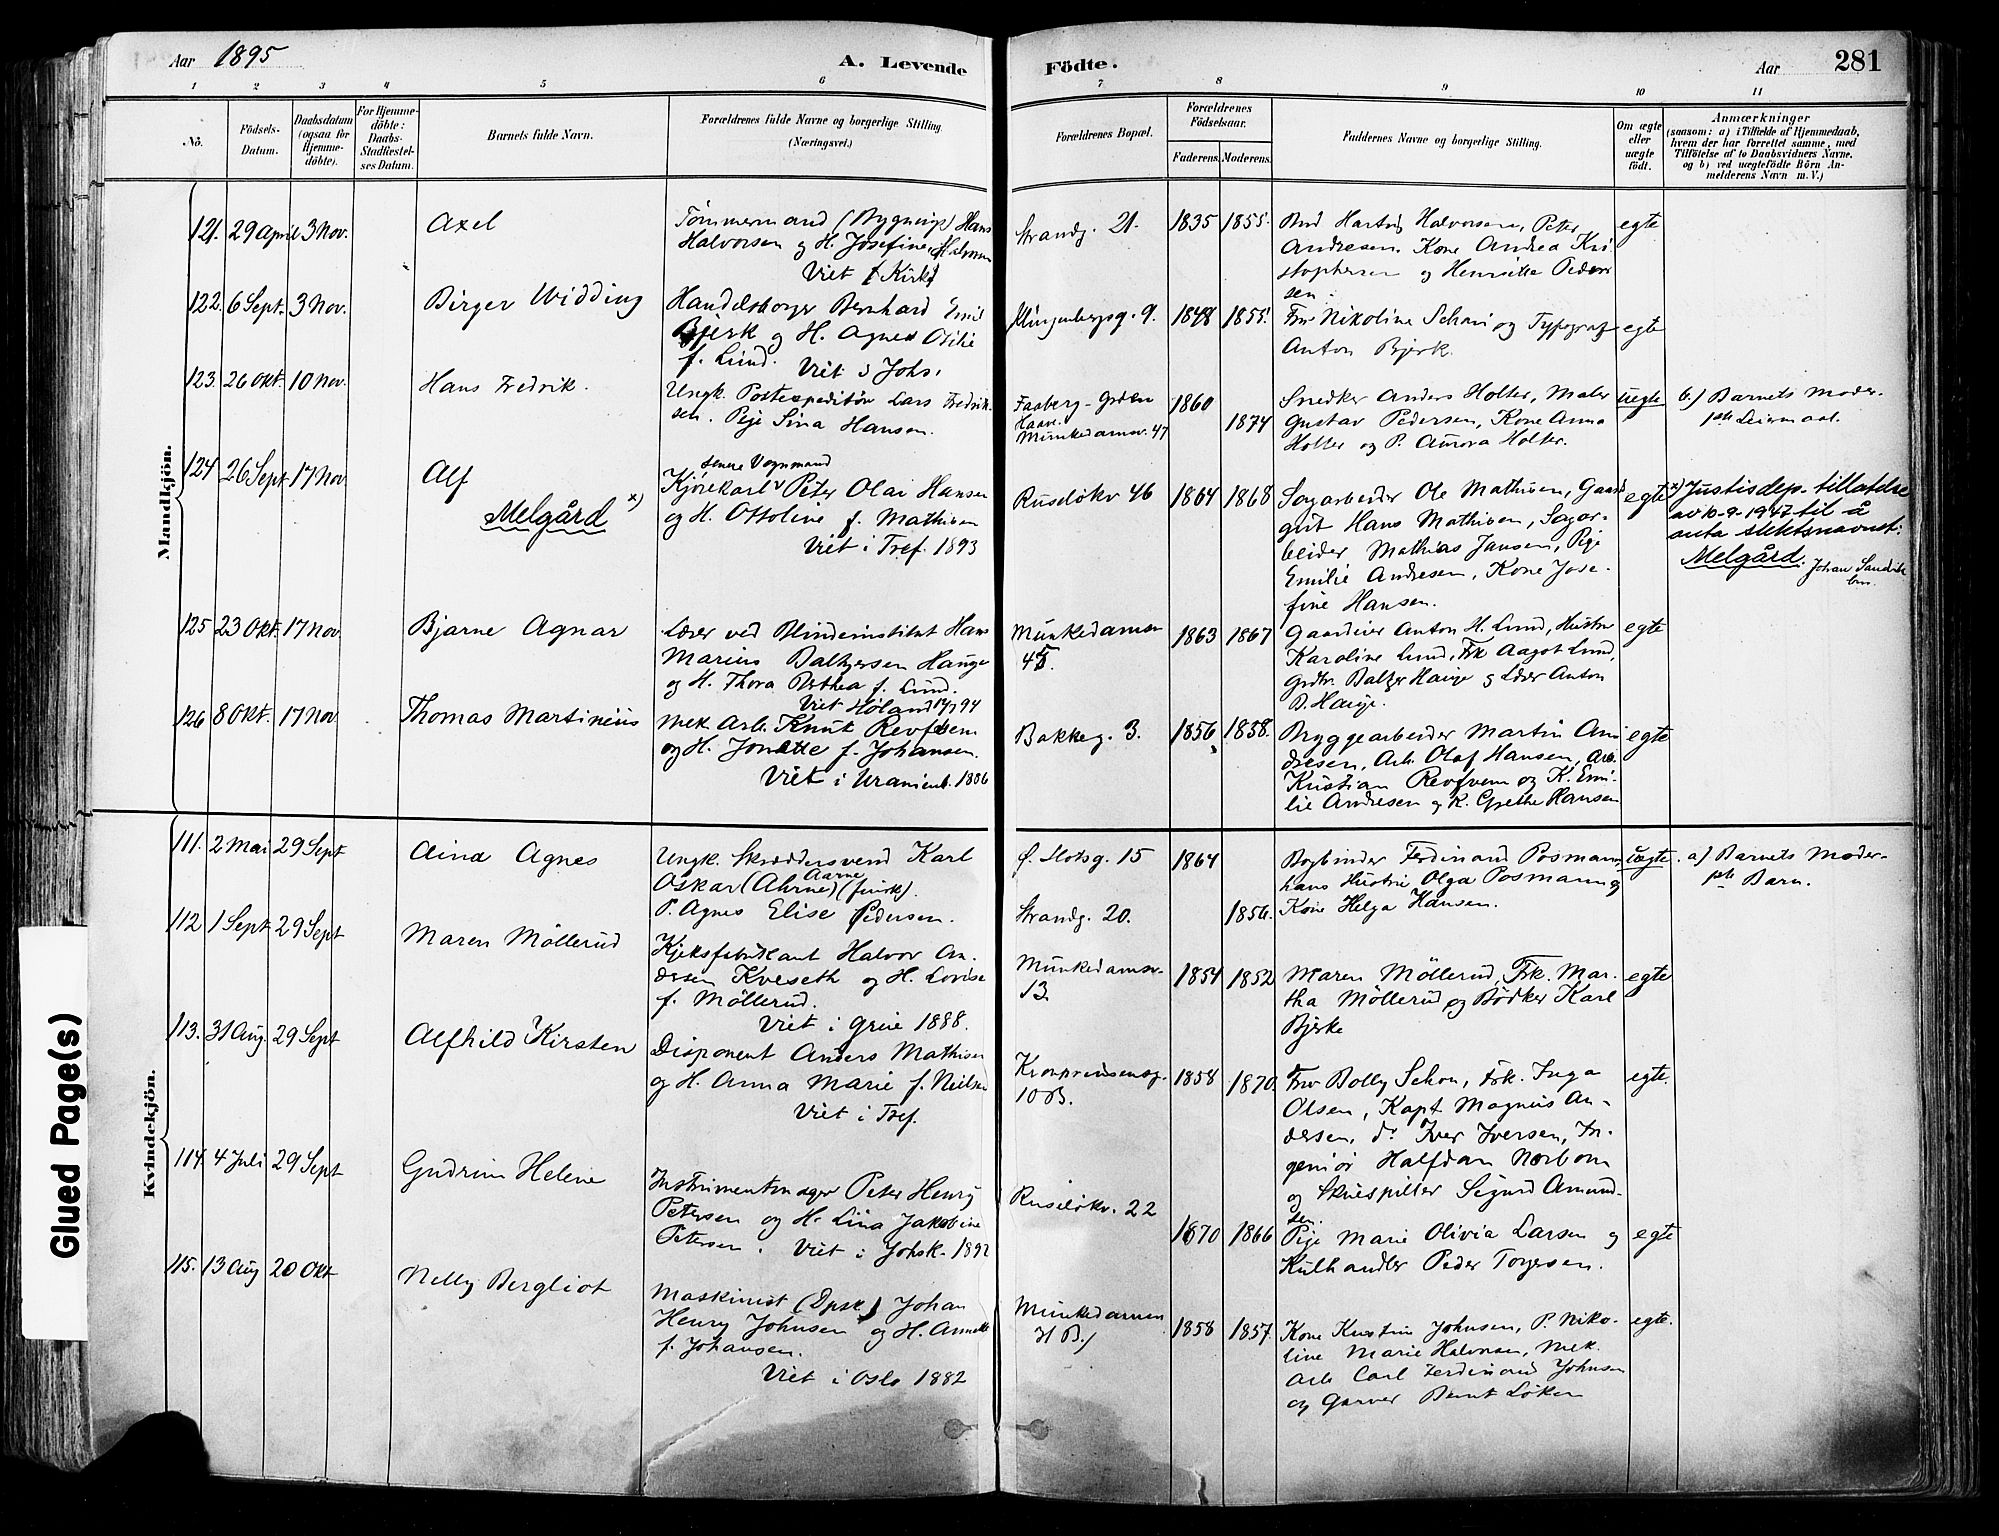 Aar 1895
A. Levende
Födte.
Aar
281
1 2 3 4 5 6 7 8 9 10 11
Nö.
Födsels-
Datum.
Daabsdatum
(ogsaa for
Hjemme-
döbte).
For Hjemme-
döbte:
Daabs-
Stadfæstel-
ses Datum.
Barnets fulde Navn.
Forældrenes fulde Navne og borgerlige Stilling.
(Næringsvei.)
Forældrenes Bopæl.
Forældrenes
Födselsaar.
Faderens. Moderens.
Faddernes Navne og borgerlige Stilling.
Om ægte
eller
uægte
födt.
Anmærkninger
(saasom: a) i Tilfælde af Hjemmedaab,
hvem der har forrettet samme, med
Tilföielse af to Daabsvidners Navne,
og b) ved uægtefödte Börn An-
melderens Navn m. V.)
Mandkjön.
121. 29 April 3 Nov.
Axel
Tömmermand (Bygnings) Hans
Halvorsen og H. Josefine
Viet i Kirke
Strandg. 21.
1835 1855
Halvorsen, Peter
Andresen, Kone Andrea Kri
stophersen og Henriette Peder
sen.
egte
122. 6 Sept. 3 Nov.
Birger Widding
Handelsborger Bernhard Emil
Bjerk og H. Agnes Otilie
f. Lund. Viet i Johs.
Klingenbergg. 9.
1848 1855
Fru Nikoline Schou og Typograf
Anton Bjerk.
egte
123. 26 Okt. 10 Nov.
Hans Fredrik.
Ungk. Postexpeditör Lars Fredrik-
sen. Pige Lina Hansen.
Faaberg-
Munkedamsv. 47
1860
1874
Snedker Anders Holter, Maler
Gustav Pedersen, Kone Anna
Holter og P. Aurora Holter.
uegte
b.) Barnets Moder.
1ste Leiermaal.
124 26 Sept 17 Nov.
Alf
Melgård x)
senere Vognmand
Kjörekarl Peter Olai Hansen
og H. Ottoline f. Mathisen
Viet i Tref. 1893
Ruselökv 46
1864 1868
Sagarbeider Ole Mathisen, Gaard
gut Hans Mathisen, Sagar-
beider Mathias Jansen, Pige
Emilie Andresen, Kone Jose-
fine Hansen.
egte
x) Justisdep. tillatelse
av 10-9-1947 til å
anta slektsnavnet:
Melgård. Johan Sandvik
bm.
125 23 Okt. 17 Nov.
Bjarne Agnar
Lærer ved Blindeinstitut Hans
Marius Baltzersen Hauge
og H. Thora Berthea f. Lund.
Viet Höland 94
Munkedamsv
45.
1863 1867
Gaardeier Anton H. Lund, Hustru
Karoline Lund, Frk Aagot Lund,
Grdbr. Baltzer Hauge og Lærer Anton
B. Hauge.
egte
126 8 Okt. 17 Nov
Thomas Martinius
Mek Arb. Knut Revfvem
og H. Jonette f. Johansen.
Viet i Uranienb. 1886
Bakkeg. 3.
1856 1858.
Bryggearbeider Martin An
dresen, Arb. Olaf Hansen, Arb.
Kristian Revfvem og K. Emi-
lie Andresen og K. Grethe Hansen
egte
Kvindekjön.
111. 2 Mai 29 Sept
Aina Agnes
Ungk. Skræddersvend Karl
Aarne
Oskar (Ahrne) (finsk).
P. Agnes Elise Pedersen.
Slotsg. 15
Strandg. 20.
1864
1856.
Bogbinder Ferdinand Posmann,
hans Hustru Olga Posmann og
Kone Helga Hansen.
uegte.
a) Barnets Moder-
1ste Barn.
112 1 Sept 29 Sept
Maren Möllerud
Kjeksfabrikant Halvor An-
dersen Kveseth og H. Lovise
f. Möllerud.
Viet i Grue 1888.
Munkedamsv.
13.
1854 1852
Maren Möllerud, Frk. Mar-
tha Möllerud og Bödker Karl
Bjerke
egte
113. 31 Aug. 29 Sept
Alfhild Kirsten
Disponent Anders Mathisen
og H. Anna Marie f. Nielsen
Viet i Tref.
Kronprinsensg.
10 B.
1858 1870
Fru Bolly Schou, Frk. Inga
Olsen, Kapt Magnus An-
dersen, do Iver Iversen, In-
geniör Halfdan Norbom
og Skuespiller Sigurd Amund-
sen.
egte.
114. 4 Juli 29 Sept
Gudrun Helene
Instrumentmager Peter Henry
Petersen og H. Lina Jakobine
Petersen. Viet i Johsk. 1892
Ruselökv. 22
1870 1866
Pige Marie Olivia Larsen og
Kulhandler Peder Torgersen.
egte
115. 13 Aug 20 Okt
Nelly Bergliot
Maskinist (Dpsk.) Johan
Henry Johnsen og H. Annette
f. Johansen.
Viet i Oslo 1882
Munkedamsv
1858 1857.
Kone Kristine Johnsen, P. Niko-
line Marie Halvorsen, Mek.
Arb Carl Ferdinand Johnsen
og Garver Bernt Löken
egte.
Glued Page(s)